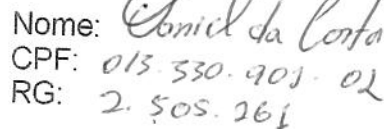 Nome: Daniel da Costa
CPF: 013.330.901-02
RG: 2.505.261